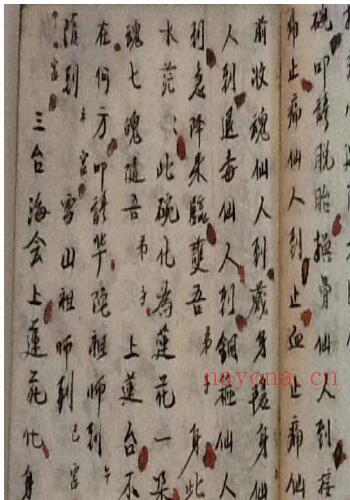 碗叩請脱胎換骨仙人到接
止痛仙人到止血止痛仙
前收魂仙人到藏身接身仙
人到退毒仙人到銅極仙人
到急降来臨變吾弟子身此
水茫〻此碗化為蓮花一朵
魂七魄随吾弟子上蓮台不
在何方叩請华陀祖師到午
宮随到未宮雪山祖師到巳宮
三台海会上蓮花化身
nayona.cn